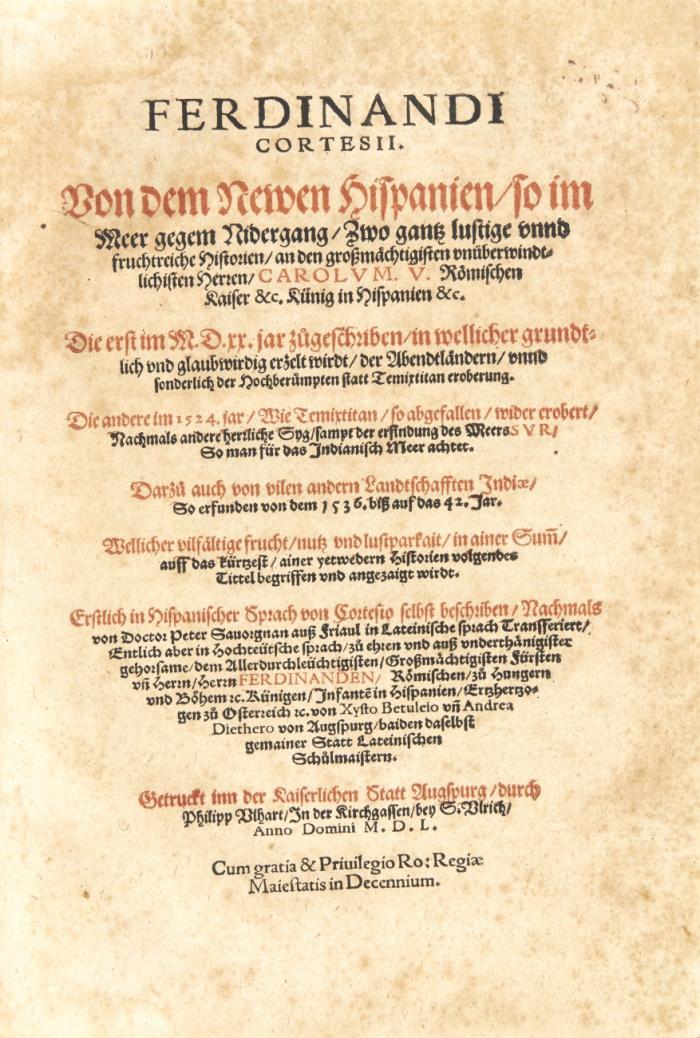 FERDINANDI
CORTESII.
Von dem Newen Hispanien/so im
Meer gegem Nidergang/Zwo gantz lustige vnnd
fruchtreiche Historien/an den großmächtigisten vnüberwindt-
lichisten Herren/CAROLVM. V. Römischen
Kaiser &c. Künig in Hispanien &c.
Die erst im M.D.xx. jar zůgeschriben/in wellicher grundt-
lich vnd glaubwirdig erzelt wirdt/der Abendtländern/vnnd
sonderlich der Hochberümpten statt Temixtitan eroberung.
Die andere im 1524. jar/Wie Temixtitan/so abgefallen/wider erobert/
Nachmals andere herrliche Syg/sampt der erfindung des Meers SVR/
So man für das Indianisch Meer achtet.
Darzů auch von vilen andern Landtschafften Indiæ/
So erfunden von dem 1536. biß auf das 42. Jar.
Wellicher vilfältige frucht/nutz vnd lustparkait/in ainer Sum̃/
auff das kürtzest/ainer yetwedern Historien volgendes
Tittel begriffen vnd angezaigt wirdt.
Erstlich in Hispanischer Sprach von Cortesio selbst beschriben/Nachmals
von Doctor Peter Sauorgnan auß Friaul in Lateinische sprach Transferiert/
Entlich aber in Hochteütsche sprach/zů ehren vnd auß vnderthänigister
gehorsame/dem Allerdurchleüchtigisten/Großmächtigisten Fürsten
vñ Herrn/Herrn FERDINANDEN/Römischen/zů Hungern
vnd Böhem ꝛc. Künigen/Infantē in Hispanien/Ertzhertzo-
gen zů Osterreich ꝛc. von Xysto Betuleio vñ Andrea
Diethero von Augspurg/baiden daselbst
gemainer Statt Lateinischen
Schůlmaistern.
Getruckt inn der Kaiserlichen Statt Augspurg/durch
Philipp Vlhart/In der Kirchgassen/bey S. Vlrich/
Anno Domini M. D. L.
Cum gratia & Priuilegio Ro: Regiæ
Maiestatis in Decennium.